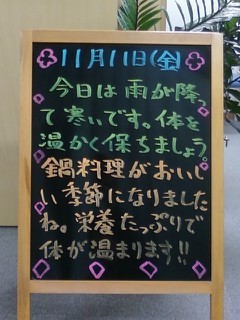 11月11日(金)
今日は雨が降っ
て寒いです。体を
温かく保ちましょう。
鍋料理がおいし
い季節になりました
ね。栄養たっぷりで
体が温まります!!